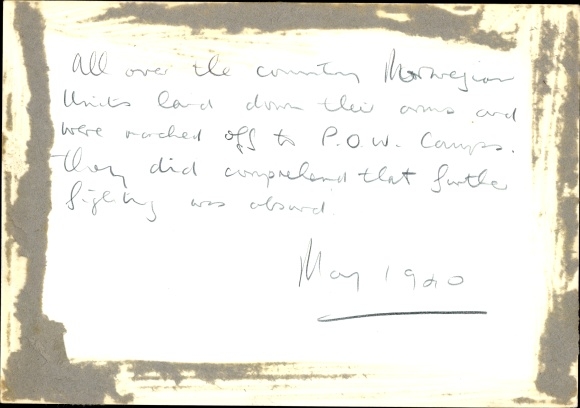 All over the country Norwegian
Units laid down their arms and
were marched off to P.O.W. Camps.
They did comprehend that further
fighting was absurd.
May 1940